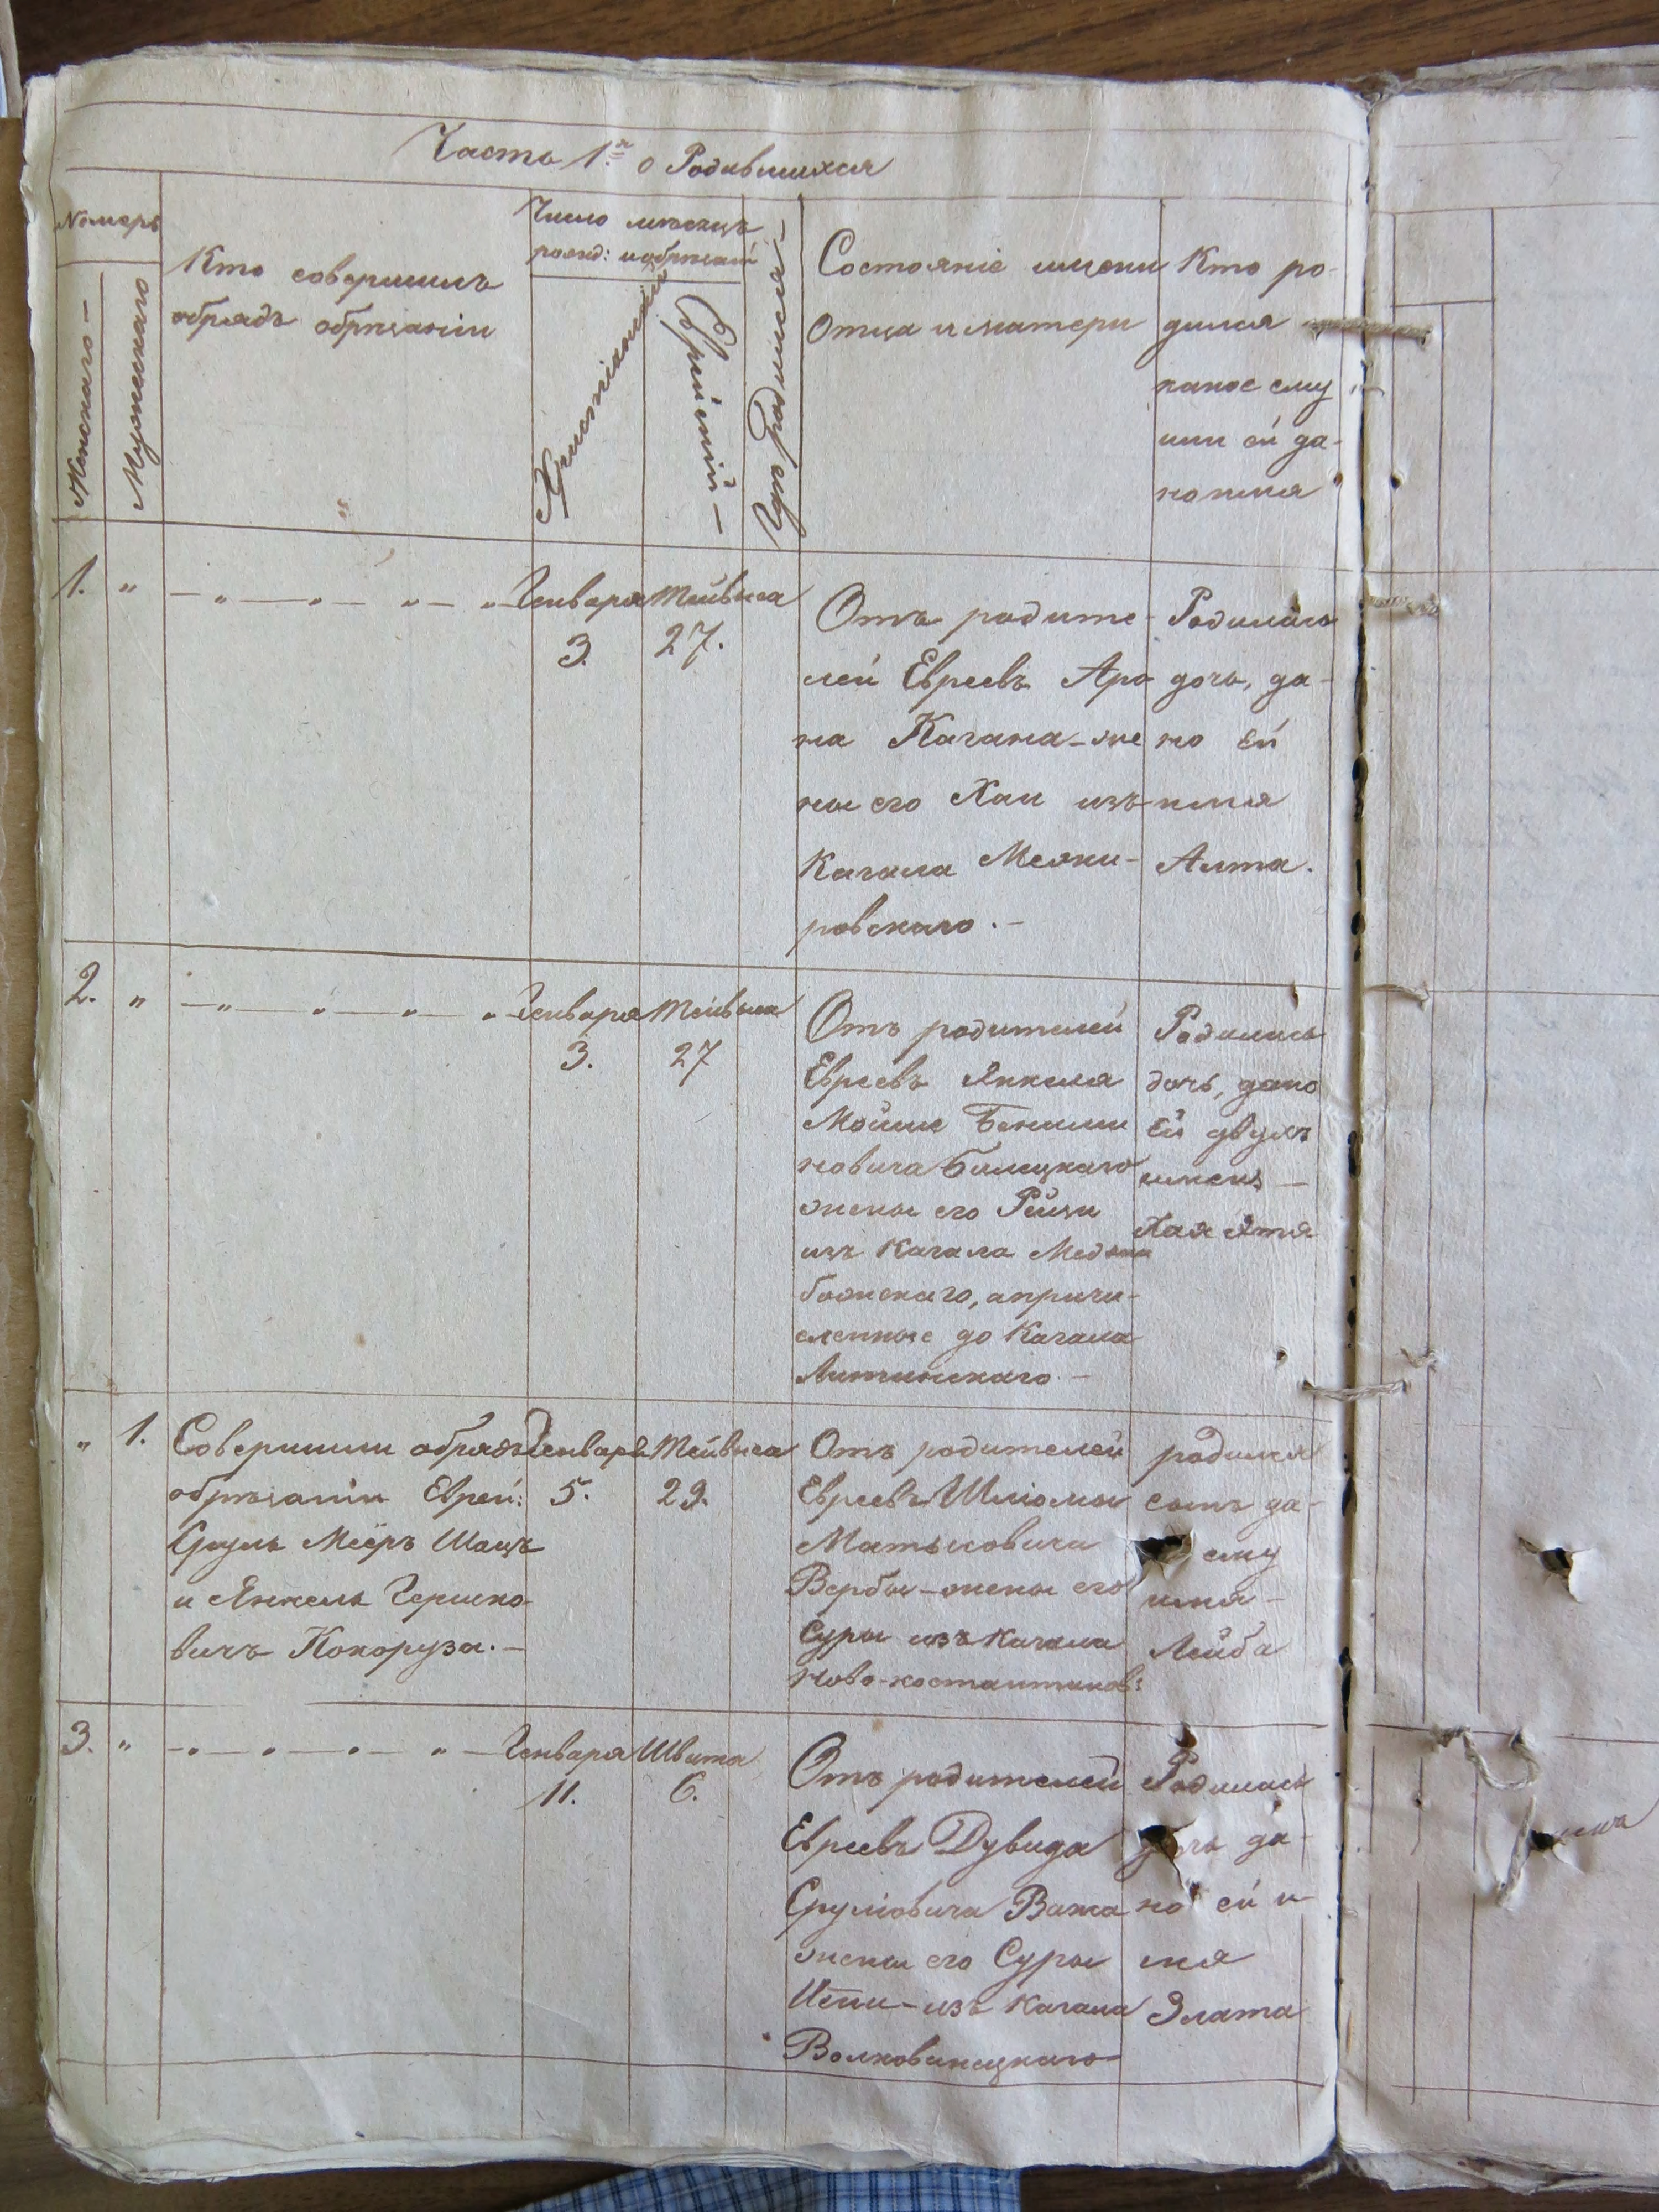 Часть 1.я о Родившихся
Номеръ
Женскаго —
Мужескаго
Кто совершилъ
обрядъ обрѣзанія
Число мѣсяцъ
рожд: и обрѣзанй
Христіянский
Еврейский —
Гдѣ родился —
Состояніе имени
Отца и матери
Кто ро-
дился
какое ему
или ей да-
но имя
1. " — " — " — " — "
Генваря
3.
Тейвиса
27.
Отъ родите-
лей Евреевъ Аро
на Кагана - же
ны его Хаи изъ
Кагала Межи-
ровскаго. —
Родилась
дочь, да-
но ей
имя
Алта.
2. " — " — " — " — "
Генваря
3.
Тейвиса
27
Отъ родителей
Евреевъ Янкеля
Мойше Бениями
новича Билецкаго
жены его Рейзи
изъ Кагала Меджи
божскаго, а причи-
сленные до Кагала
Литинскаго —
Родилась
дочь, дано
ей двухъ
имены —
Хая Этя
" 1.
Совершили обрядъ
обрѣзанія Еврей:
Сруль Меёръ Шацъ
и Янкель Гершко-
вичъ Кокоруза. —
Генваря
5.
Тейвиса
29.
Отъ родителей
Евреевъ Шліомы
Матысовича
Вербы - жены его
Суры изъ Кагала
Ново-костантинов:
родился
сынъ да-
ему
имя —
Лейба
3. " — " — " — " — " —
Генваря
11.
Швата
6.
Отъ родителей
Евреевъ Дувида
Сруліовича Важа
жены его Суры
Изъ Кагала
Волковинецкаго
Родилась
дочь да-
но ей и-
мя
Злата